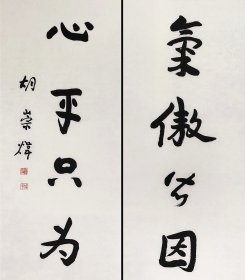 氣傲皆因
心平只为
胡崇煒